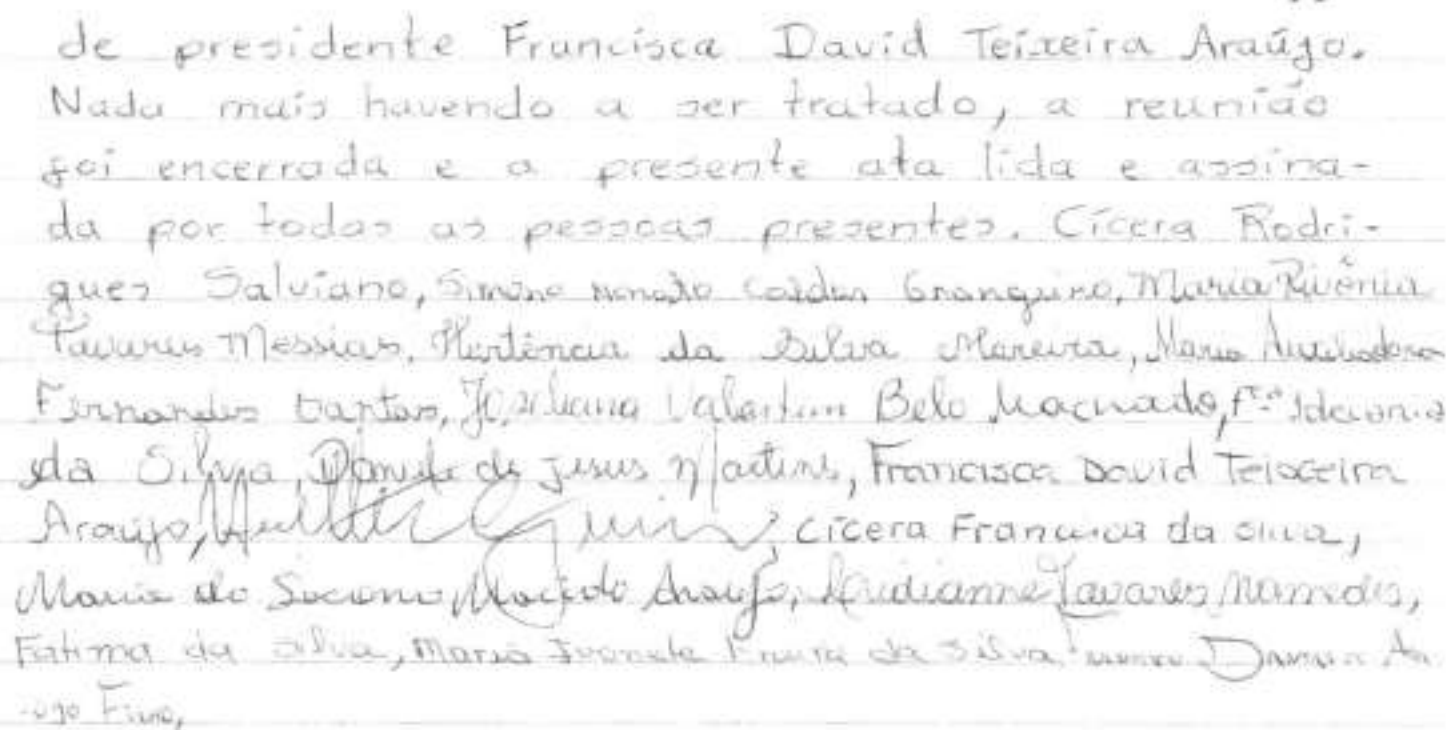 de presidente Francisca David Teixeira Araújo.
Nada mais havendo a ser tratado, a reunião
foi encerrada e a presente ata lida e assina-
da por todas as pessoas presentes. Cícera Rodri-
gues Salviano, Simone Caldas Granguiro, Maria Rivônia
Tavares Messias, Hortência da Silva Moreira, Maria Auxiliadora
Fernandes Dantas, Joziliana Valentim Belo Machado, Fca
da Silva, Daniele de Jesus Martins, Francisca David Teixeira
Araújo, Cícera Francisca da Silva,
Maria do Socorro Macêdo Araujo, Tavares Mamedes,
Fatima da Silva, Maria Ivonete da Silva